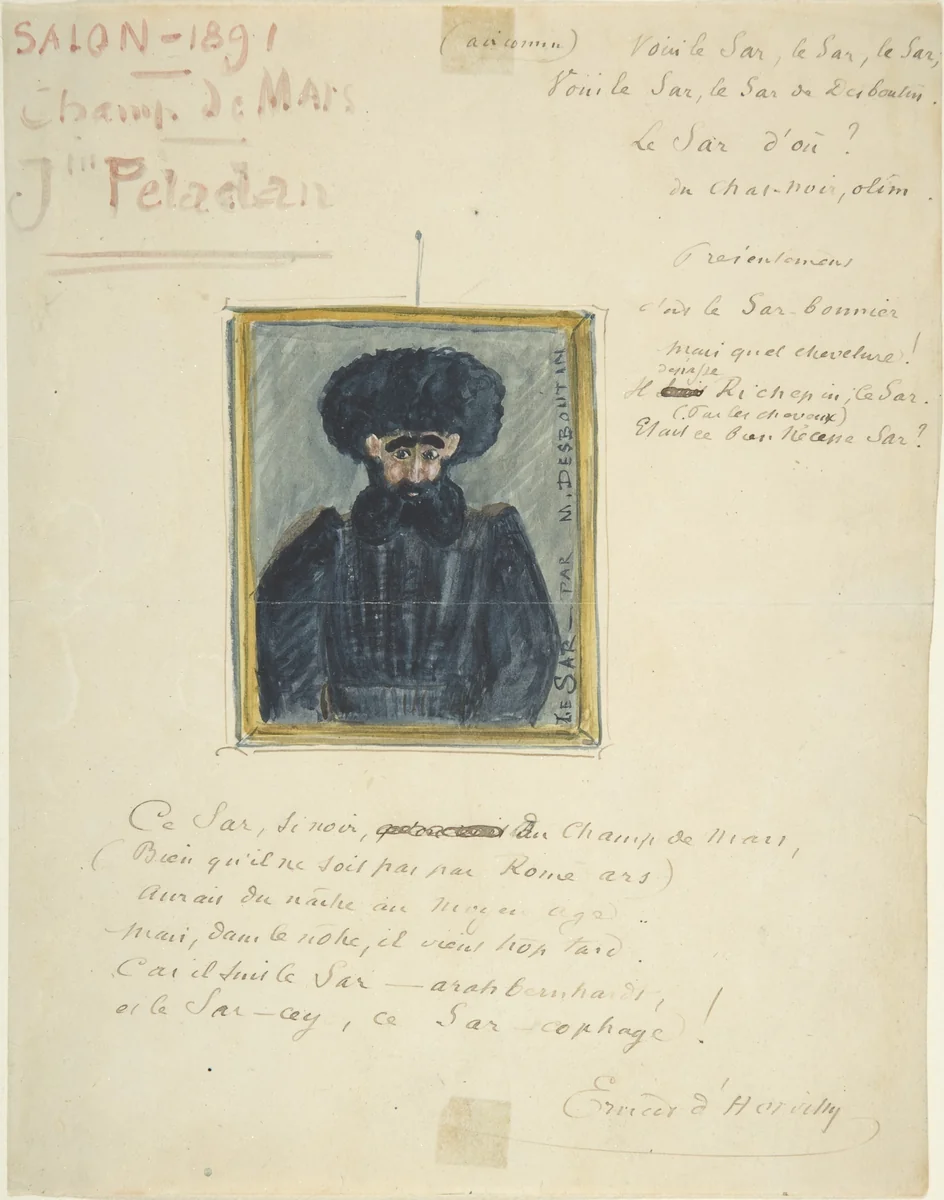 SALON - 1891
Champ de MARS
Jin Peladan
(air connu)
Voici le Sar, le Sar, le Sar,
Voici le Sar, le Sar de Desboutin.
Le Sar d'où ?
du Chat-noir, olim.
Présentement
c'est le Sar-bonnier
mais quel chevelure !
dépasse
Il Richepin, ce Sar.
(Par les cheveux)
Etait ce bien Nécesse Sar ?
LE SAR - PAR M. DESBOUTIN
Ce Sar, si noir, du Champ de Mars,
(Bien qu'il ne soit pas par Rome ars)
Aurait du naître au moyen age ..
Mais, dans le nôtre, il vient trop tard.
Car il suit le Sar - arah bernhardt,
et le Sar-cey, ce Sar-cophage !
Ernest d'Hervilly